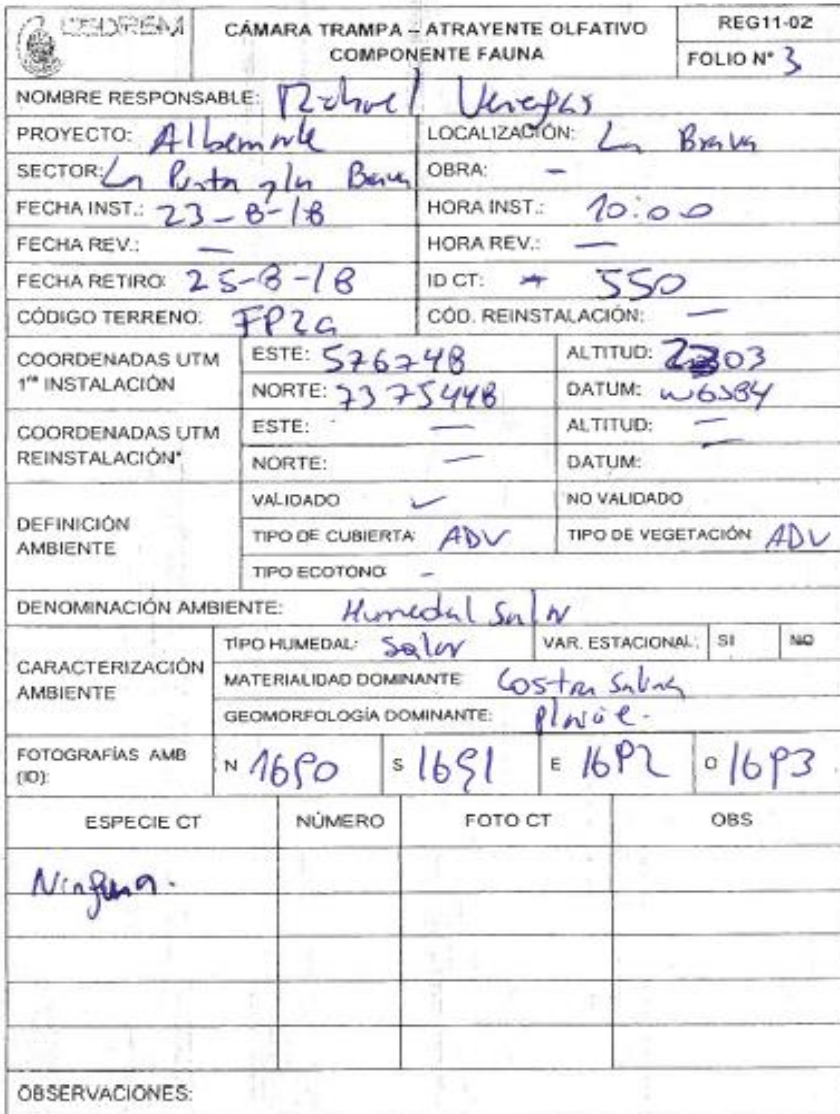 CEDREM
CÁMARA TRAMPA – ATRAYENTE OLFATIVO
COMPONENTE FAUNA
REG11-02
FOLIO N° 3
NOMBRE RESPONSABLE: Michael Venegas
PROYECTO: Albemarle
LOCALIZACIÓN: La Brava
SECTOR: La Punta y la Brava
OBRA: —
FECHA INST.: 23-8-18
HORA INST.: 10:00
FECHA REV.: —
HORA REV.: —
FECHA RETIRO: 25-8-18
ID CT: 550
CÓDIGO TERRENO:
CÓD. REINSTALACIÓN: —
COORDENADAS UTM
1ra INSTALACIÓN
ESTE: 576748
ALTITUD: 2303
NORTE: 7375448
DATUM: WGS84
COORDENADAS UTM
REINSTALACIÓN*
ESTE: —
ALTITUD: —
NORTE: —
DATUM: —
DEFINICIÓN
AMBIENTE
VALIDADO ✓
NO VALIDADO
TIPO DE CUBIERTA ADV
TIPO DE VEGETACIÓN ADV
TIPO ECOTONO: -
DENOMINACIÓN AMBIENTE: Humedal Salar
CARACTERIZACIÓN
AMBIENTE
TIPO HUMEDAL: Salar
VAR. ESTACIONAL: SI NO
MATERIALIDAD DOMINANTE Costra Salina
GEOMORFOLOGÍA DOMINANTE: Planicie.
FOTOGRAFÍAS AMB
(ID):
N 1690
S 1691
E 1692
O 1693
ESPECIE CT
NÚMERO
FOTO CT
OBS
Ninguna.
OBSERVACIONES: